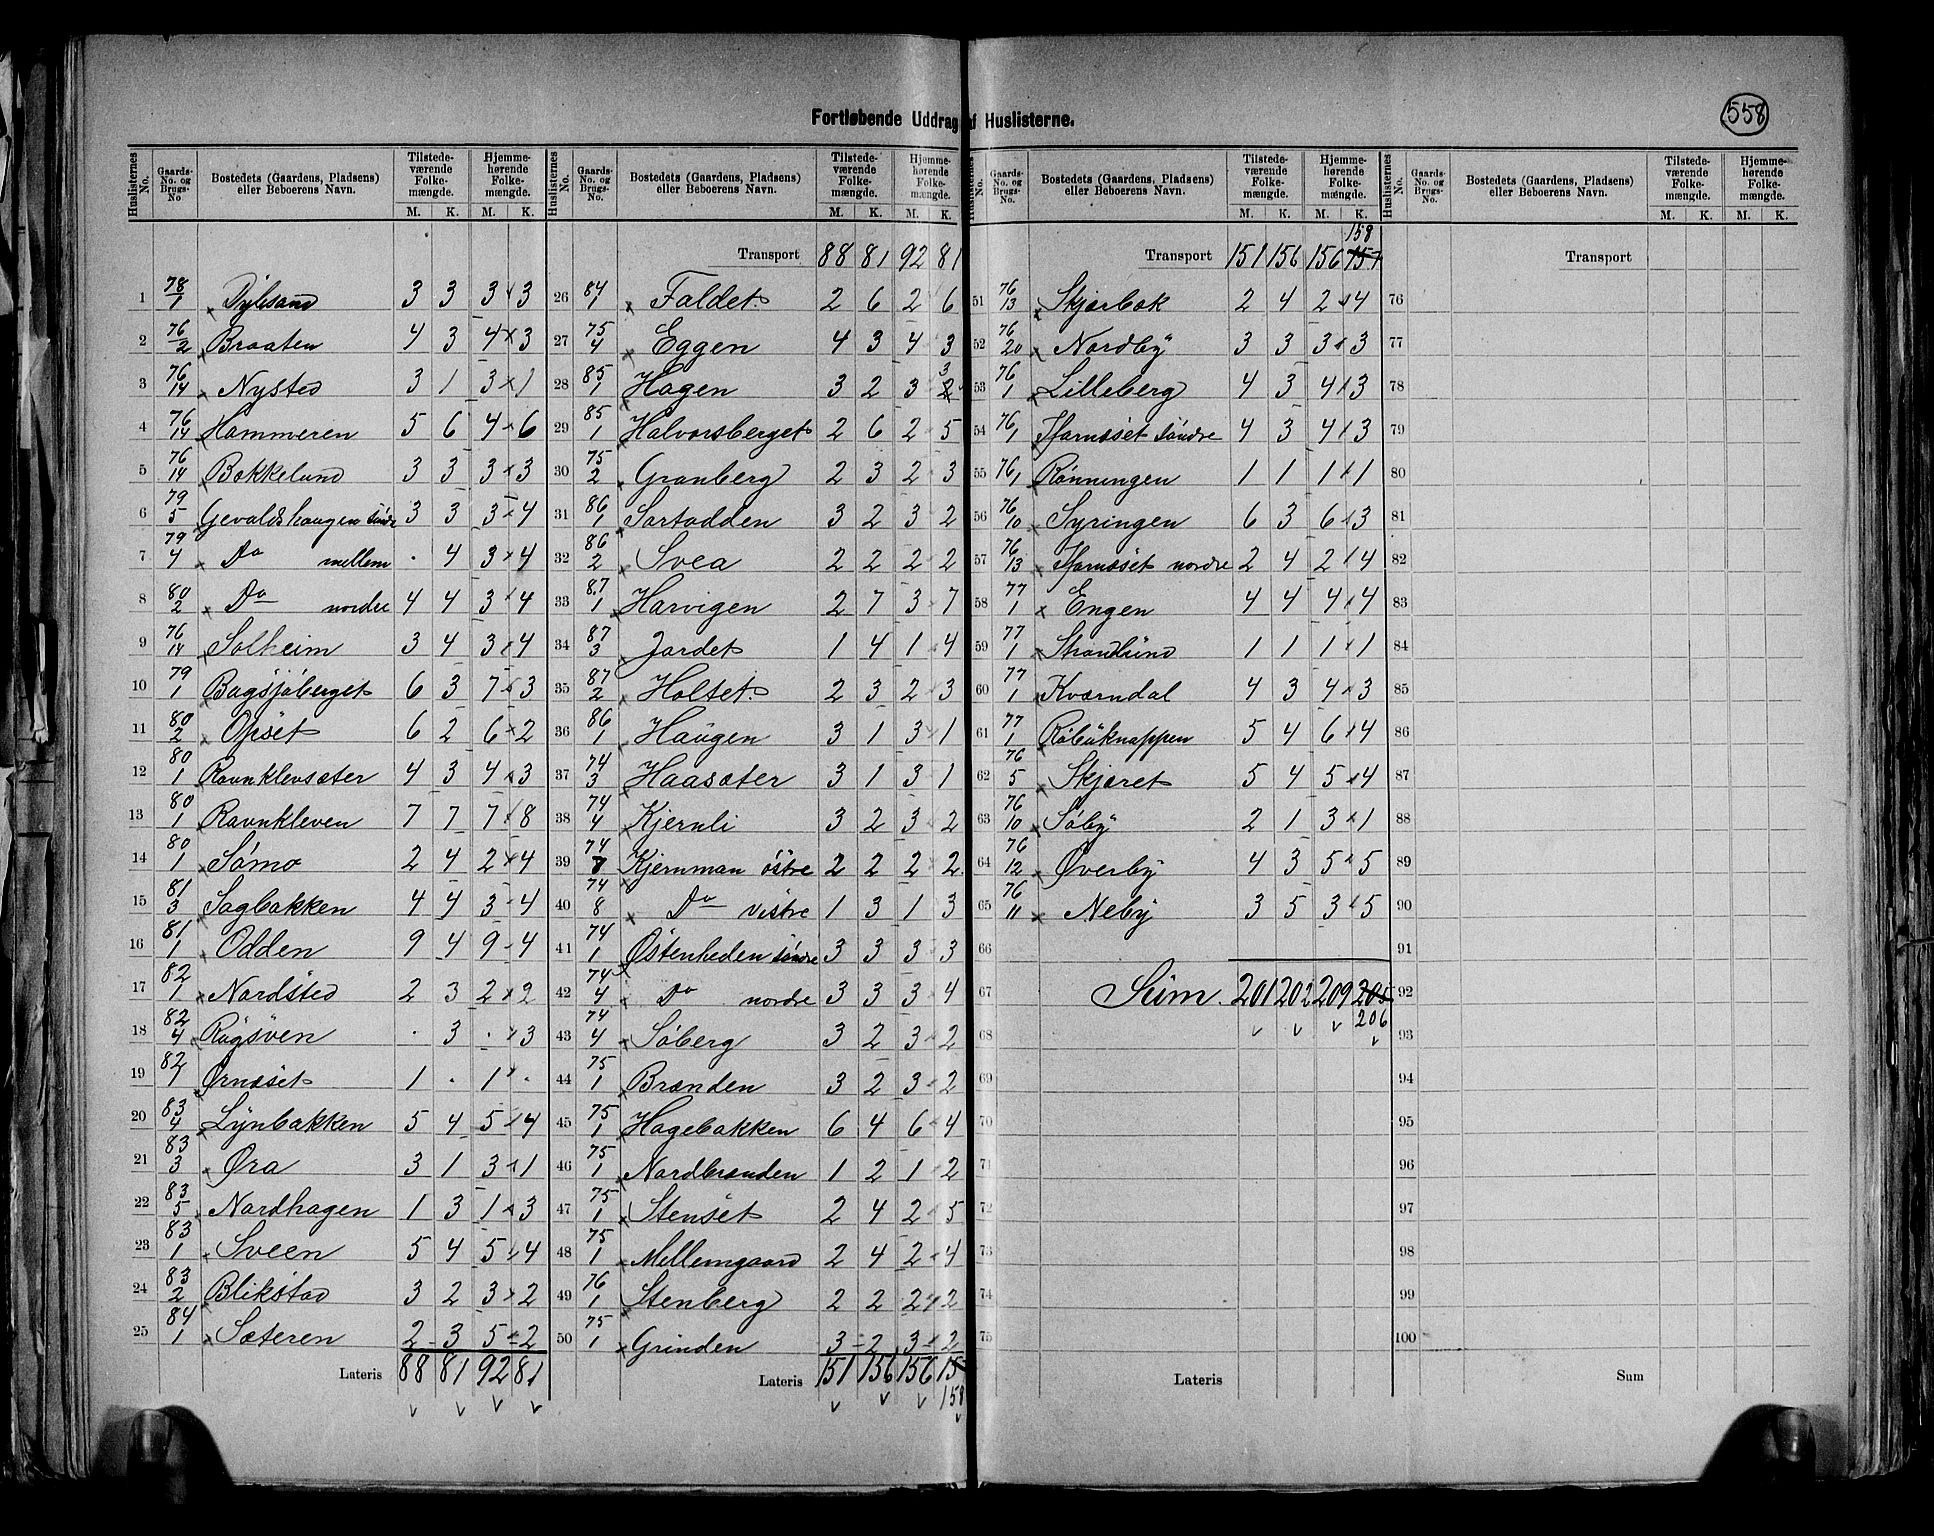 558
Fortløbende Uddrag af Huslisterne.
Huslisternes No. | Gaards-No. og Brugs-No | Bostedets (Gaardens, Pladsens) eller Beboerens Navn. | Tilstedeværende Folkemængde. M. K. | Hjemmehørende Folkemængde. M. K.
1 78/1 Dylsand 3 3 3 3
2 76/2 Braaten 4 3 4 3
3 76/14 Nysted 3 1 3 1
4 76/14 Hammeren 5 6 4 6
5 76/14 Bakkelund 3 3 3 3
6 79/5 Gevaldshaugen søndre 3 3 3 4
7 79/4 Do mellem · 4 3 4
8 80/2 Do nordre 4 4 3 4
9 76/14 Solheim 3 4 3 4
10 79/1 Bagsjøberget 6 3 7 3
11 80/2 Opset 6 2 6 2
12 80/1 Ravnklevsæter 4 3 4 3
13 80/1 Ravnkleven 7 7 7 8
14 80/1 Sømo 2 4 2 4
15 81/3 Sagbakken 4 4 3 4
16 81/1 Odden 9 4 9 4
17 82/1 Nordsted 2 3 2 2
18 82/4 Røgsven · 3 · 3
19 82/1 Ørnæset 1 · 1 ·
20 83/4 Lynbakken 5 4 5 4
21 83/3 Øra 3 1 3 1
22 83/5 Nordhagen 1 3 1 3
23 83/1 Sveen 5 4 5 4
24 83/2 Blikstad 3 2 3 2
25 84/1 Sæteren 2 3 5 2
Lateris 88 81 92 81
Huslisternes No. | Gaards-No. og Brugs-No. | Bostedets (Gaardens, Pladsens) eller Beboerens Navn. | Tilstedeværende Folkemængde. M. K. | Hjemmehørende Folkemængde. M. K.
Transport 88 81 92 81
26 84/1 Faldet 2 6 2 6
27 75/4 Eggen 4 3 4 3
28 85/1 Hagen 3 2 3 2 3
29 85/1 Halvorsberget 2 6 2 5
30 75/2 Granberg 2 3 2 3
31 86/1 Sortodden 3 2 3 2
32 86/2 Svea 2 2 2 2
33 87/1 Harvigen 2 7 3 7
34 87/3 Jordet 1 4 1 4
35 87/2 Holtet 2 3 2 3
36 86/1 Haugen 3 1 3 1
37 74/3 Haasæter 3 1 3 1
38 74/4 Kjernli 3 2 3 2
39 74/7 Kjernman østre 2 2 2 2
40 74/8 Do vestre 1 3 1 3
41 74/1 Østenheden søndre 3 3 3 3
42 74/4 Do nordre 3 3 3 4
43 74/4 Søberg 3 2 3 2
44 75/1 Brænden 3 2 3 2
45 75/1 Hagebakken 6 4 6 4
46 75/1 Nordbrænden 1 2 1 2
47 75/1 Stenset 2 4 2 5
48 75/1 Mellemgaard 2 4 2 4
49 76/1 Stenberg 2 2 2 2
50 75/1 Grinden 3 2 3 2
Lateris 151 156 156 15
158
No. | Gaards-No. og Brugs-No. | Bostedets (Gaardens, Pladsens) eller Beboerens Navn. | Tilstedeværende Folkemængde. M. K. | Hjemmehørende Folkemængde. M. K.
158
Transport 151 156 156 157
51 76/13 Skjærbæk 2 4 2 4
52 76/20 Nordby 3 3 3 3
53 76/1 Lilleberg 4 3 4 3
54 76/1 Jfarnæset søndre 4 3 4 3
55 76/1 Rønningen 1 1 1 1
56 76/10 Syringen 6 3 6 3
57 76/13 Jfarnæset nordre 2 4 2 4
58 77/1 Engen 4 4 4 4
59 77/1 Strandlund 1 1 1 1
60 77/1 Kværndal 4 3 4 3
61 77/1 Røbuknappen 5 4 6 4
62 76/5 Skjæret 5 4 5 4
63 76/10 Søby 2 1 3 1
64 76/12 Øverby 4 3 5 5
65 76/11 Neby 3 5 3 5
66
67 Sum. 201 202 209 205
206
68
69
70
71
72
73
74
75
Lateris
Huslisternes No. | Gaards-No. og Brugs-No. | Bostedets (Gaardens, Pladsens) eller Beboerens Navn. | Tilstedeværende Folkemængde. M. K. | Hjemmehørende Folkemængde. M. K.
Transport
76
77
78
79
80
81
82
83
84
85
86
87
88
89
90
91
92
93
94
95
96
97
98
99
100
Sum